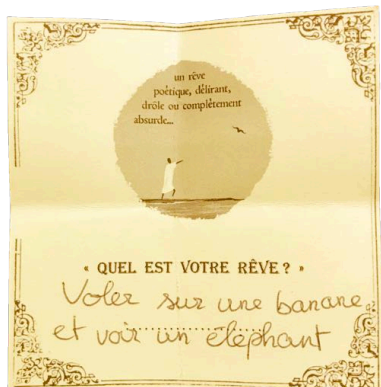 un rêve
poétique, délirant,
drôle ou complètement
absurde...
« QUEL EST VOTRE RÊVE ? »
Voler sur une banane
et voir un éléphant